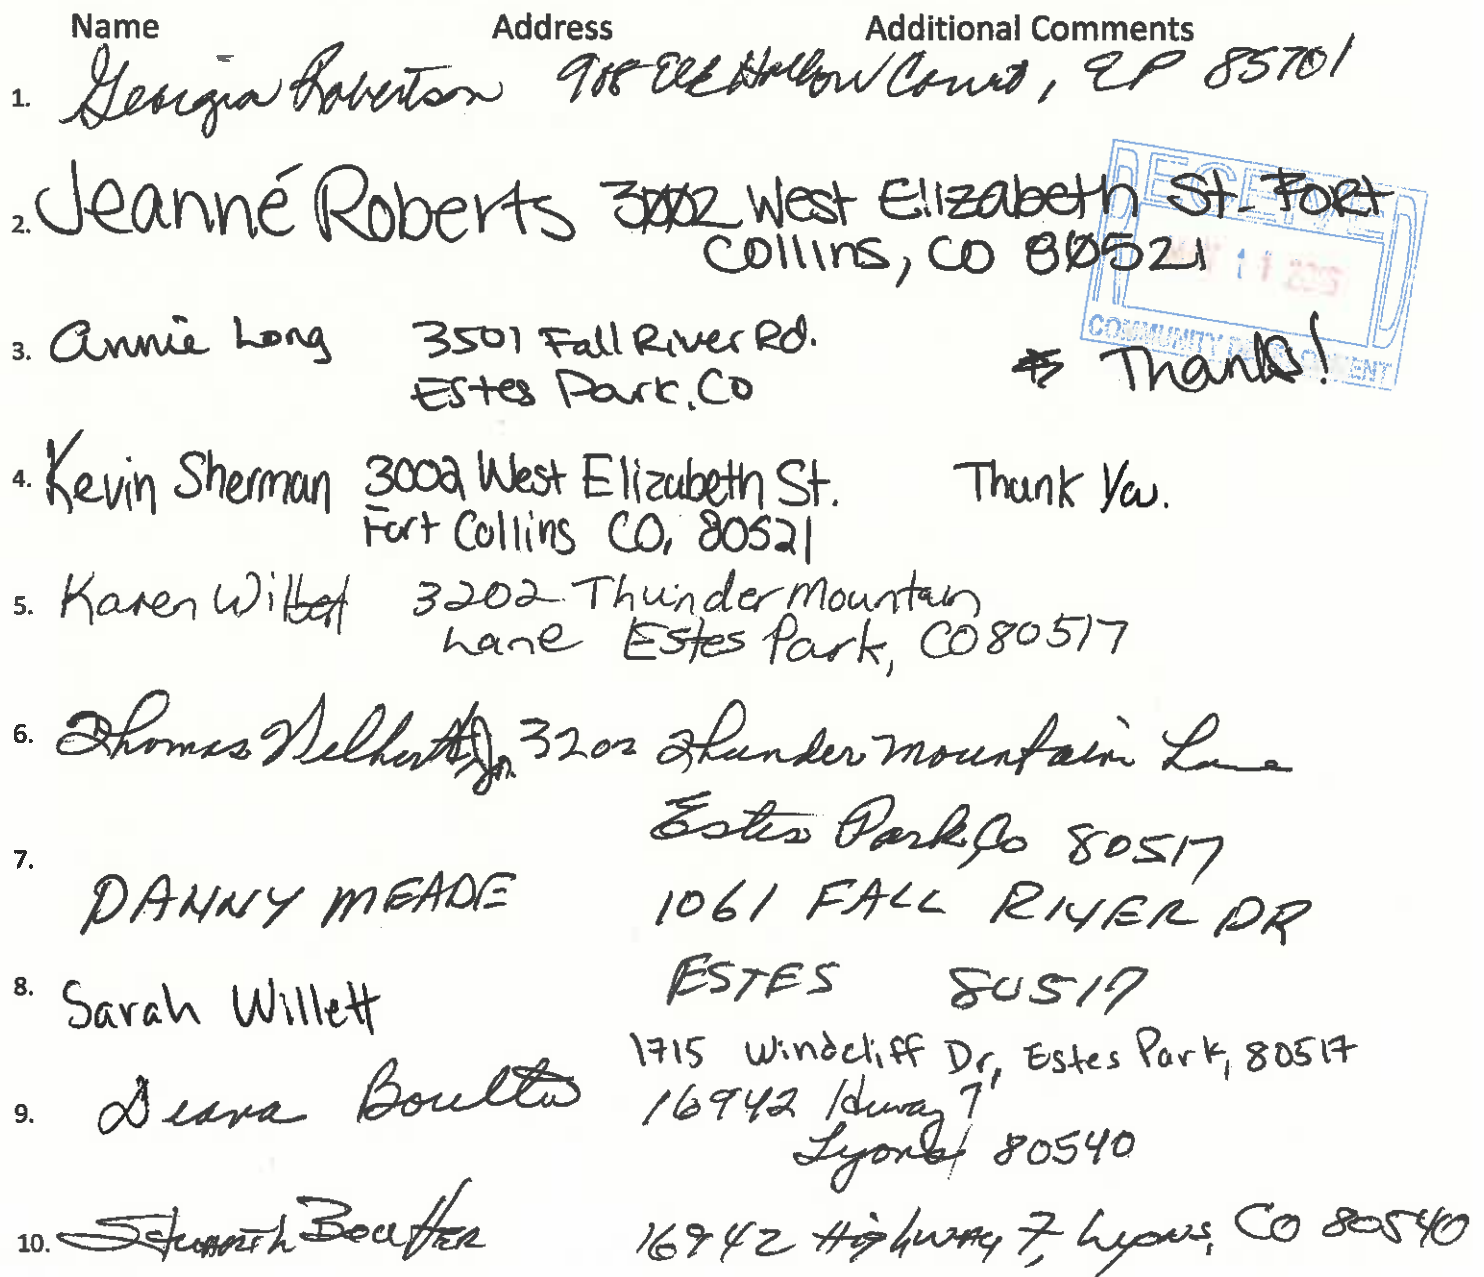 Name Address Additional Comments
1. Georgia Robertson 908 Elk Hollow Court, EP 85701
2. Jeanné Roberts 3002 West Elizabeth St. Fort
Collins, CO 80521
RECEIVED
11
COMMUNITY DEVELOPMENT
3. Annie Long 3501 Fall River Rd. * Thanks!
Estes Park, Co
4. Kevin Sherman 3002 West Elizabeth St. Thank You.
Fort Collins CO, 80521
5. Karen 3202 Thunder Mountain
Lane Estes Park, CO 80517
6. Thomas Jr. 3202 Thunder Mountain Lane
Estes Park, Co 80517
7. DANNY MEADE 1061 FALL RIVER DR
ESTES 80517
8. Sarah Willett
1715 Windcliff Dr, Estes Park, 80517
9. 16942 7
Lyons 80540
10. 16942 Highway 7, Lyons, CO 80540